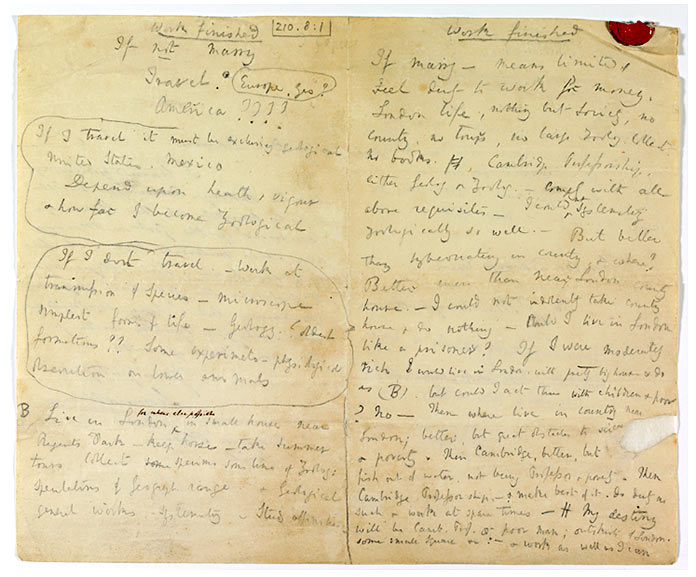 Work finished
210.8:1
If not marry
Travel. Europe, yes?
America ????
If I travel it must be exclusively geological
United States, Mexico
Depend upon health & vigour
& how far I become Zoological
If I dont travel — Work at
transmission of Species — microscope
simplest forms of life — Geology. oldest
formations?? Some experiments — physiological
observation on lower animals
B Live in London for where else possible in small house near
Regents Park — keep horse — take Summer
tours Collect specimens some line of Zoolog:
Speculations of Geograph. range & Geological
general works — systematiz — Study affinities
Work finished
If marry — means limited
Feel duty to work for money.
London life, nothing but Society, no
country, no tours, no large Zoolog. Collect.
no books. Cambridge Professorship,
either Geolog. or Zoolog. — comply with all
above requisites — I could systematiz
zoologically so well. — But better
than hybernating in country, & where?
Better even than near London country
house. — I could not indolently take country
house & do nothing — Could I live in London
like a prisoner? If I were moderately
rich I would live in London, with pretty big house & do
as (B), but could I act thus with children & poor
? No — Then where live in country near
London; better, but great obstacles to science
& poverty. Then Cambridge, better, but
fish out of water, not being Professor & poverty. Then
Cambridge Professorship, — & make best of it — do duty as
such & work at spare times — My destiny
will be Camb. Prof. or poor man; outskirts of London.
some small Square &c: — & work as well as I can